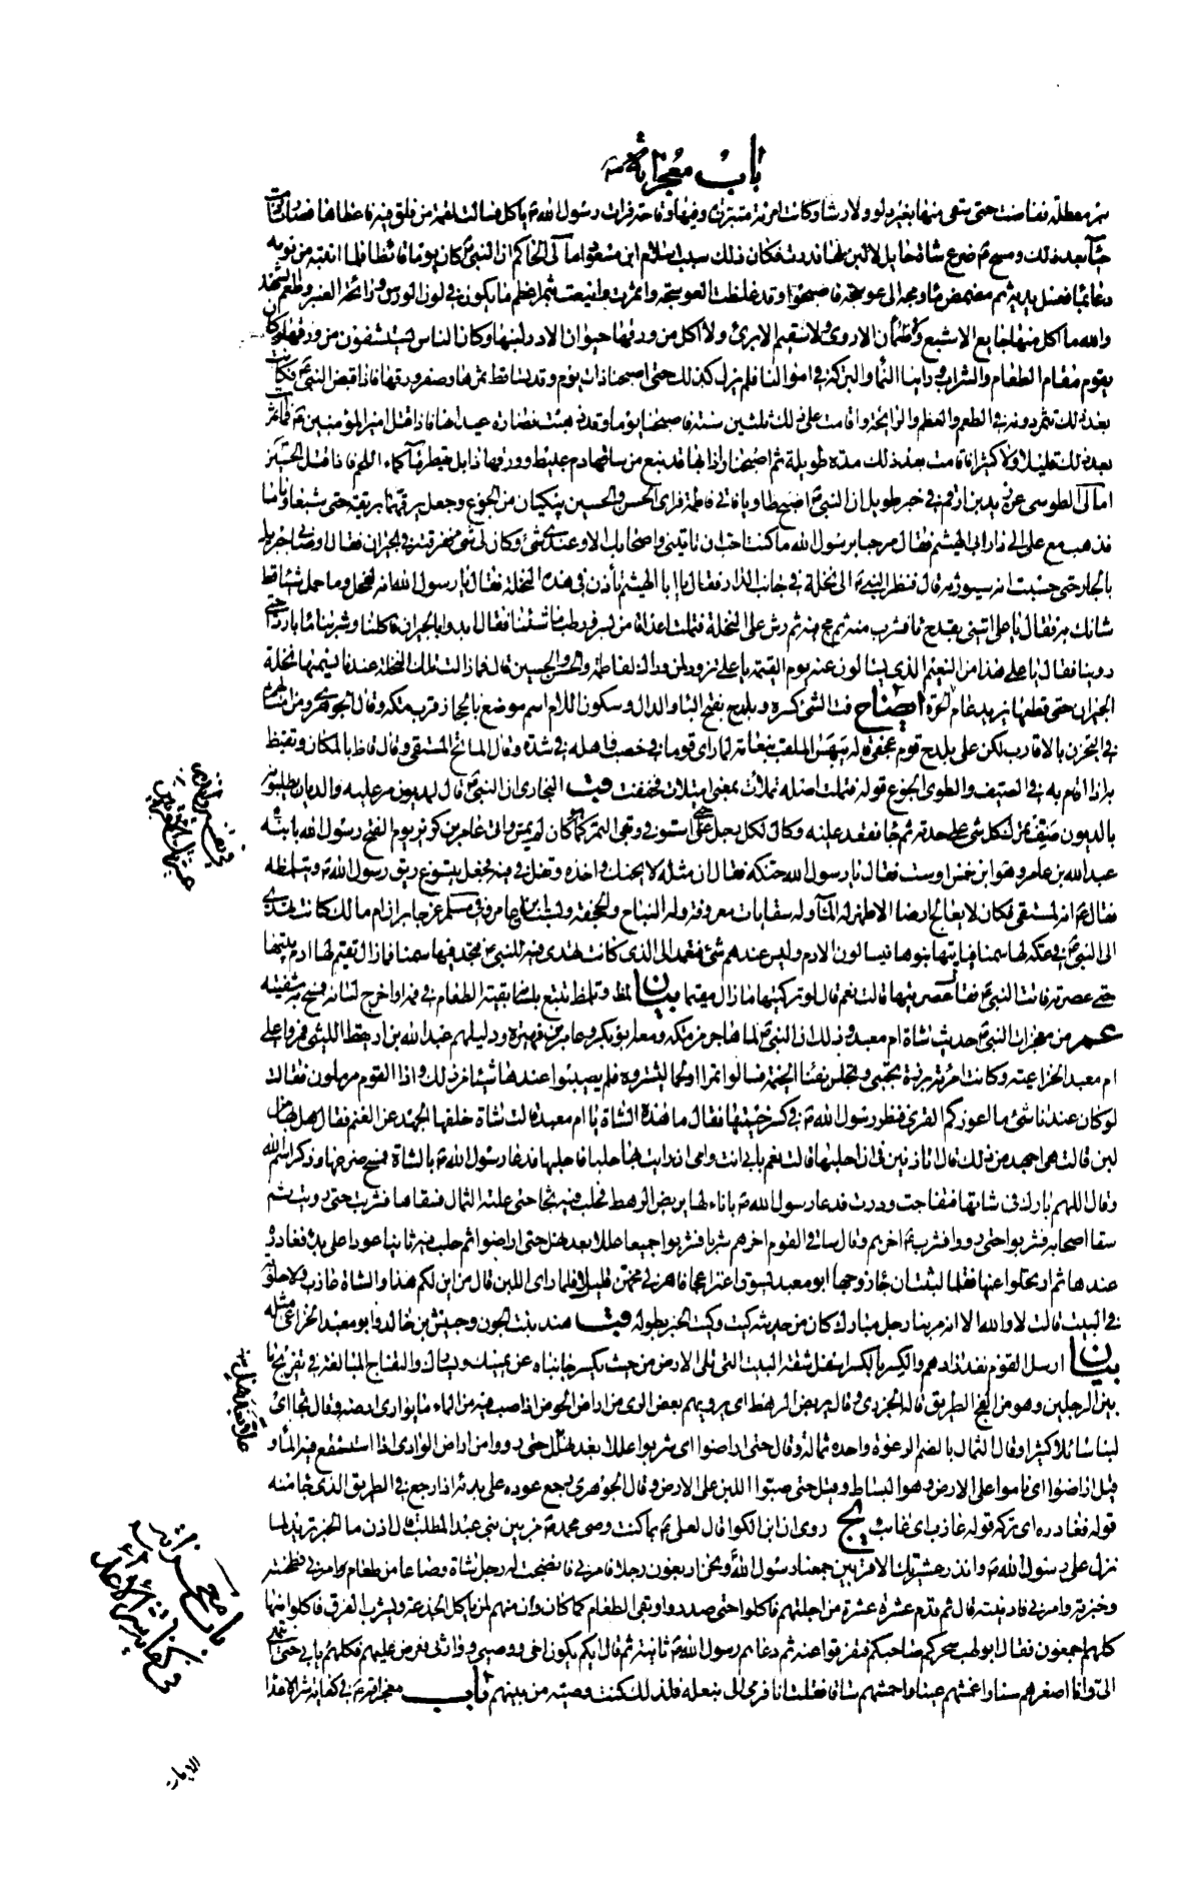 باب معجزاته ص
بئر معطلة ففاضت حتى سقي منها بغير دلو ولا رشا وكانت امرءة متبرزة وفيها وقاحة فرات رسول الله ص ياكل فسالت لقمة من فلق فيه فاعطاها فصارت ذات
حياء بعد ذلك ومسح ص ضرع شاة حايل لا لبن لها فدرت فكان ذلك سبب اسلام ابن مسعود امالي الحاكم ان النبي ص كان يوما قائظا فلما انتبه من نومه
دعا بماء فغسل يديه ثم مضمض ماء ومجه الى عوسجة فاصبحوا وقد غلظت العوسجة واثمرت واينعت بثمر اعظم ما يكون في لون الورس ورائحة العنبر وطعم الشهد
والله ما اكل منها جايع الا شبع ولا ظمآن الا روي ولا سقيم الا برئ ولا اكل من ورقها حيوان الا در لبنها وكان الناس يستشفون من ورقها وكان
يقوم مقام الطعام والشراب وراينا النماء والبركة في اموالنا فلم يزل كذلك حتى اصبحنا ذات يوم وقد تساقط ثمرها وصفر ورقها فاذا قبض النبي ص فكانت
بعد ذلك تثمر دونه في الطعم والعظم والرائحة واقامت على ذلك ثلثين سنة فاصبحنا يوما وقد ذهبت نضارة عيدانها فاذا قتل امير المؤمنين ع فما اثمرت
بعد ذلك قليلا ولا كثيرا فاقامت بعد ذلك مدة طويلة ثم اصبحنا واذا بها قد نبع من ساقها دم عبيط وورقها ذابل يقطر ماء كماء اللحم فاذا قتل الحسين
امالي الطوسي عن زيد بن ارقم في خبر طويل ان النبي ص اصبح طاويا فاتى فاطمة فراى الحسن والحسين يبكيان من الجوع وجعل يزقهما بريقه حتى شبعا وناما
فذهب مع علي الى دار ابي الهيثم فقال مرحبا برسول الله ما كنت احب ان تاتيني واصحابك الا وعندي شئ وكان لي شئ ففرقته في الجيران فقال اوصاني جبرئيل
بالجار حتى حسبت انه سيورثه قال فنظر النبي ص الى نخلة في جانب الدار فقال يا ابا الهيثم تأذن في هذه النخلة فقال يا رسول الله انه لفحل وما حمل شيئا قط
شانك به فقال يا علي ائتني بقدح ماء فشرب منه ثم مج فيه ثم رش على النخلة فتملت اعذاقا من بسر ورطب ما شئنا فقال ابدوا بالجيران فاكلنا وشربنا ماء باردا حتى
روينا فقال يا علي هذا من النعيم الذي يسالون عنه يوم القيمة يا علي تزود لمن وراك لفاطمة والحسن والحسين قال فما زالت تلك النخلة عندنا نسميها نخلة
الجيران حتى قطعها يزيد عام الحرة ايضاح فت الشئ كسره وبلدح بفتح الباء والدال وسكون اللام اسم موضع بالحجاز قرب مكة وقال الجوهري ومن امثالهم
في التحزن بالاقارب لكن على بلدح قوم عجفى قاله بيهس الملقب بنعامة لما راى قوما في خصب واهله في شدة وقال المائح المستقي وقال قاظ بالمكان وتقيظ
به اذا اقام به في الصيف والطوى الجوع قوله فتملت اصله تملأت بمعنى امتلات فخففت قب البخاري ان النبي ص قال لمديون مر عليه والديان يطلبونه
بالديون صنف تمرك كل شئ على حدته ثم جاء فقعد عليه وكال لكل رجل حتى استوفى وبقي التمر كما كان لم يمس واتى عامر بن كريز يوم الفتح رسول الله بابنه
عبد الله بن عامر وهو ابن خمس او ست فقال يا رسول الله حنكه فقال ان مثله لا يحنك واخذه وتفل في فيه فجعل يتسوغ ريق رسول الله ص ويتلمظه
فقال ص انه لمستقى فكان لا يعالج ارضا الا ظهر له الماء وله سقايات معروفة وله النباح والجحفة وبستان ابن عامر وفي مسلم عن جابر ان ام مالك كانت تهدي
الى النبي ص في عكة لها سمنا فياتيها بنوها فيسالون الادم وليس عندهم شئ فتعمد الى الذي كانت تهدي فيه للنبي ص فتجد فيها سمنا فما زال تقيم لها ادم بيتها
حتى عصرته فاتت النبي ص فقال عصرتيها قالت نعم قال لو تركتيها ما زال مقيما بيان لمظ وتلمظ تتبع بلسانه بقية الطعام في فيه او اخرج لسانه فمسح به شفتيه
عم من معجزات النبي ص حديث شاة ام معبد وذلك ان النبي ص لما هاجر من مكة ومعه ابو بكر وعامر بن فهيرة ودليلهم عبد الله بن اريقط الليثي فمروا على
ام معبد الخزاعية وكانت امرءة برزة تحتبي وتجلس بفناء الخيمة فسالوا تمرا او لحما ليشتروه فلم يصيبوا عندها شيئا من ذلك واذا القوم مرملون فقالت
لو كان عندنا شئ ما اعوزكم القرى فنظر رسول الله ص في كسر خيمتها فقال ما هذه الشاة يا ام معبد قالت شاة خلفها الجهد عن الغنم فقال هل بها من
لبن قالت هي اجهد من ذلك قال اتاذنين في ان احلبها قالت نعم بابي انت وامي ان رايت بها حلبا فاحلبها فدعا رسول الله ص بالشاة فمسح ضرعها وذكر اسم الله
وقال اللهم بارك في شاتها فتفاجت ودرت فدعا رسول الله ص باناء لها يربض الرهط فحلب فيه ثجا حتى علته الثمال فسقاها فشربت حتى رويت ثم
سقا اصحابه فشربوا حتى رووا فشرب ص اخرهم وقال ساقي القوم اخرهم شربا فشربوا جميعا عللا بعد نهل حتى اراضوا ثم حلب فيه ثانيا عودا على بدء فغادره
عندها ثم ارتحلوا عنها فقلما لبثت ان جاء زوجها ابو معبد يسوق اعنزا عجافا هزلى مخهن قليل فلما راى اللبن قال من اين لكم هذا والشاة عازب ولا حلوبة
في البيت قالت لا والله الا انه مر بنا رجل مبارك كان من حديثه كيت وكيت الخبر بطوله قب هند بنت الجون وحبيش بن خالد وابو معبد الخزاعي مثله
بيان ارمل القوم نفد زادهم والكسر بالكسر اسفل شقة البيت التي تلي الارض من حيث يكسر جانباه عن يمينك ويسارك والتفاج المبالغة في تفريج ما
بين الرجلين وهو من الفج الطريق قاله الجزري وقال يربض الرهط اي يرويهم بعض الري من اراض الحوض اذا صب فيه من الماء ما يواري ارضه وقال ثجا اي
لبنا سائلا كثيرا وقال الثمال بالضم الرغوة واحده ثمالة وقال حتى اراضوا اي شربوا عللا بعد نهل حتى رووا من اراض الوادي اذا استنقع فيه الماء و
قيل اراضوا اي ناموا على الارض وهو البساط وقيل حتى صبوا اللبن على الارض وقال الجوهري رجع عوده على بدئه اذا رجع في الطريق الذي جاء منه
قوله فغادره اي تركه قوله عازب اي غائب يج روي ان ابن الكوا قال لعلي ع بما كنت وصي محمد ص من بين بني عبد المطلب قال ادن ما الخبر تريد لما
نزل على رسول الله ص وانذر عشيرتك الاقربين جمعنا رسول الله ونحن اربعون رجلا فامرني فانضجت له رجل شاة وصاعا من طعام وامرني فطحنته
وخبزته وامرني فادنيته قال ثم قدم عشرة عشرة من اجلتهم فاكلوا حتى صدروا وبقي الطعام كما كان وان منهم لمن ياكل الجذعة ويشرب الفرق فاكلوا منها
كلهم اجمعون فقال ابو لهب سحركم صاحبكم فتفرقوا عنه ثم دعاهم رسول الله ص ثانية ثم قال ايكم يكون اخي ووصيي ووارثي فعرض عليهم فكلهم يابى حتى انتهى
الي وانا اصغرهم سنا واعمشهم عينا واحمشهم ساقا فقلت انا فرمى الي بنعله فلذلك كنت وصيه من بينهم باب معجزاته ص في كفاية شر الاعداء
باب معجزاته
في كفاية شر الأعداء